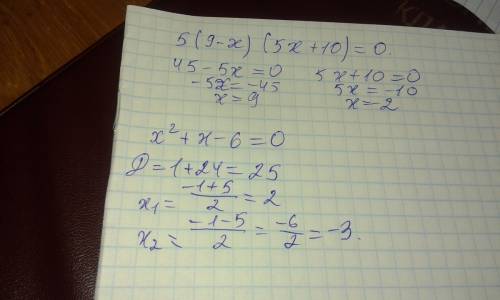 5(9-x)(5x+10)=0.
45-5x=0 5x+10=0
-5x=-45 5x=-10
x=9 x=-2
x²+x-6=0
D=1+24=25
x₁= (-1+5)/2 =2
x₂= (-1-5)/2 = -6/2 =-3.